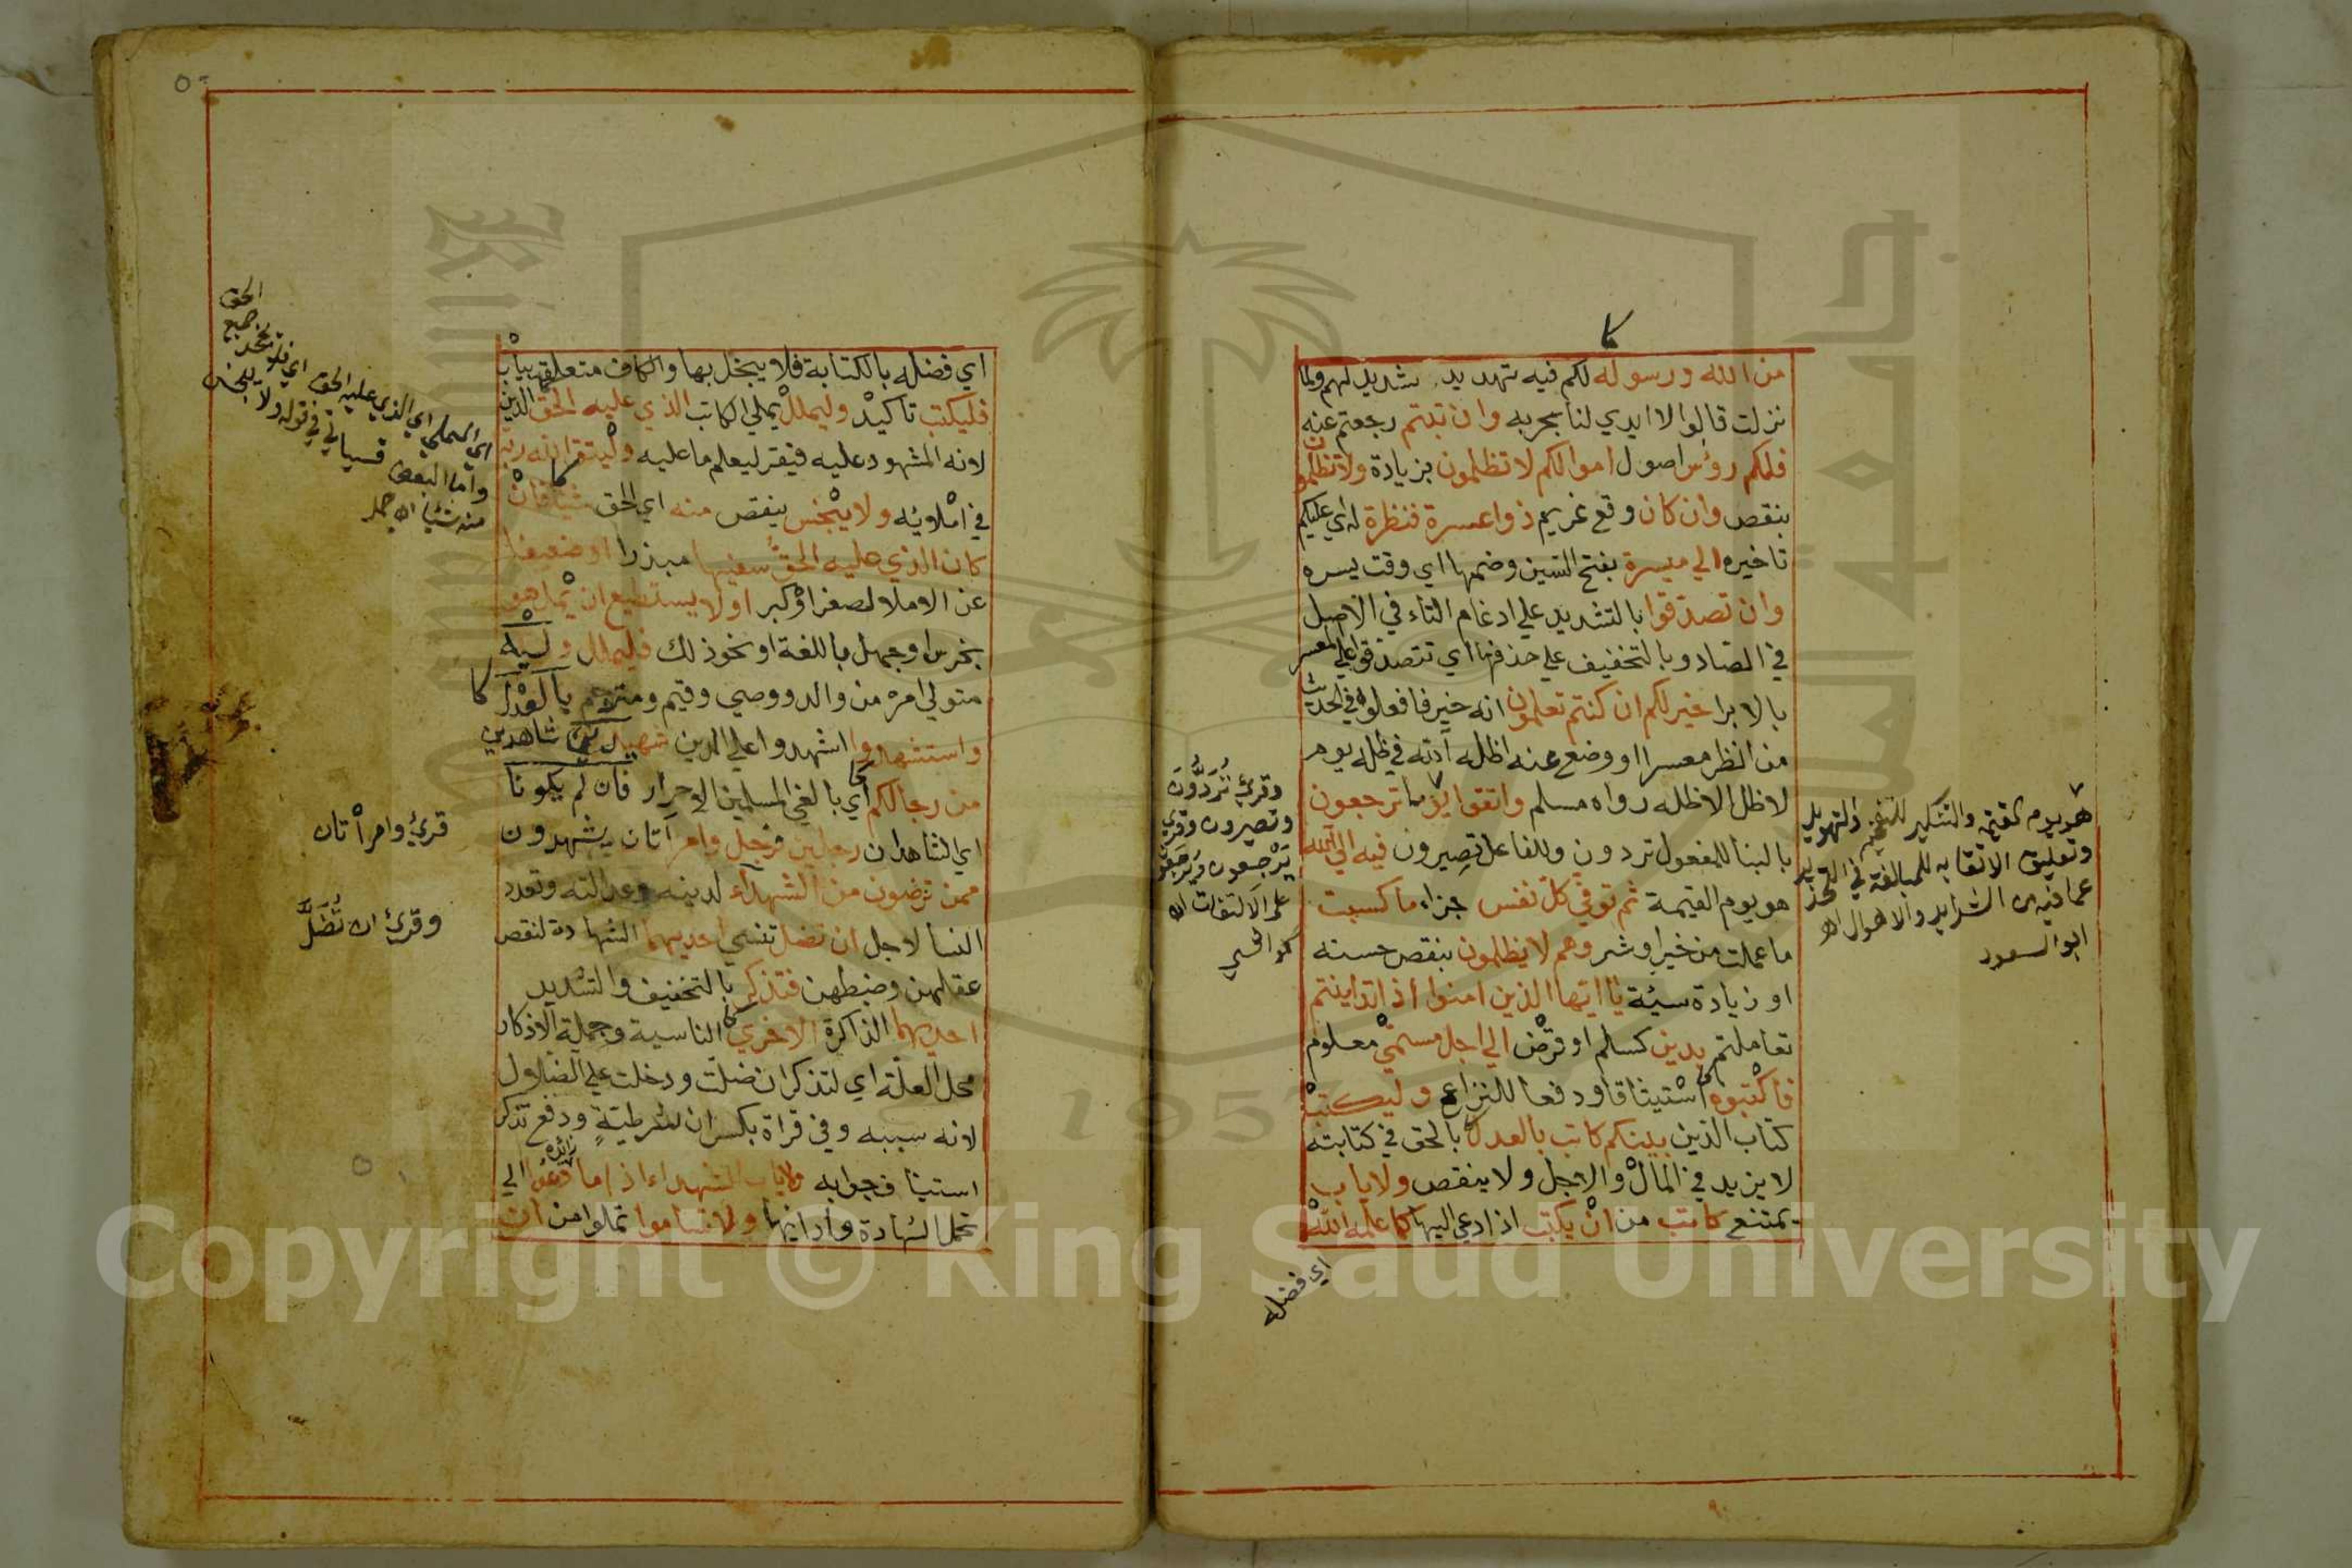 من الله ورسوله لكم فيه تهديد شديد لهم ولما
نزلت قالوا لا ايدي لنا بحربه وان تبتم رجعتم عنه
فلكم رؤس اصول اموالكم لا تظلمون بزيادة ولا تظلمون
بنقص وان كان وقع غريم ذوا عسرة فنظرة له اي عليكم
تاخيره الي ميسرة بفتح السين وضمها اي وقت يسره
وان تصدقوا بالتشديد علي ادغام التاء في الاصل
في الصاد وبالتخفيف علي حذفها اي تتصدقوا علي المعسر
بالابرا خير لكم ان كنتم تعلمون انه خير فافعلوه في الحديث
من انظر معسرا او وضع عنه اظله الله في ظله يوم
لا ظل الا ظله رواه مسلم واتقوا يوما ترجعون
بالبنا للمفعول تردون وللفاعل تصيرون فيه الي الله
هو يوم القيمة ثم توفي كل نفس جزاء ما كسبت
ما عملت من خير او شر وهم لا يظلمون بنقص حسنه
او زيادة سيئة يا ايها الذين امنوا اذا تداينتم
تعاملتم بدين كسلم او قرض الي اجل مسمي معلوم
فاكتبوه استيثاقا ودفعا للنزاع وليكتب
كتاب الدين بينكم كاتب بالعدل بالحق في كتابته
لا يزيد في المال والاجل ولا ينقص ولا ياب
يمتنع كاتب من ان يكتب اذا دعي اليها كما علمه الله
اي فضله
هو يوم القيمة والتنكير للتفخيم والتهويل
وتعليق الاتقا به للمبالغة في التحذير
عما فيه من الشدايد والاهوال اه
ابو السعود
وقرئ تُردَدُون
وتصيرون وقرئ
يرجعون
على الالتفات اه
كرخي
٥٠
اي فضله بالكتابة فلا يبخل بها والكاف متعلقة بياب
فليكتب تاكيد وليملل يملي الكاتب الذي عليه الحق الدين
لانه المشهود عليه فيقر ليعلم ما عليه وليتق الله ربه
في املائه ولا يبخس ينقص منه اي الحق شيئا فان
كان الذي عليه الحق سفيها مبذرا او ضعيفا
عن الاملا لصغر او كبر او لا يستطيع ان يمل هو
بخرس او جهل باللغة او نحو ذلك فليملل وليه
متولي امره من والد ووصي وقيم ومترجم بالعدل
واستشهدوا اشهدوا علي الدين شهيدين شاهدين
من رجالكم اي بالغي المسلمين الاحرار فان لم يكونا
اي الشاهدان رجلين فرجل وامراتان يشهدون
ممن ترضون من الشهدآء لدينه وعدالته وتعدد
النسا لاجل ان تضل تنسي احديهما الشهادة لنقص
عقلهن وضبطهن فتذكر بالتخفيف والتشديد
احديهما الذاكرة الاخري الناسية وجملة الاذكار
محل العلة اي لتذكر ان ضلت ودخلت علي الضلال
لانه سببه وفي قراة بكسر ان شرطية ورفع تذكر
استيناف جوابه ولا ياب الشهداء اذا ما زائدة دعوا الي
تحمل الشهادة وادائها ولا تساموا تملوا من ان
الحق
اي المملي اي الذي عليه الحق اي فلا يجحد جميع
واما البعض فسياتي في قوله ولا يبخس
منه شيئا اه جمل
قرئ وامرأتان
وقرئ ان تُضَلَّ
Copyright © King Saud University
1957